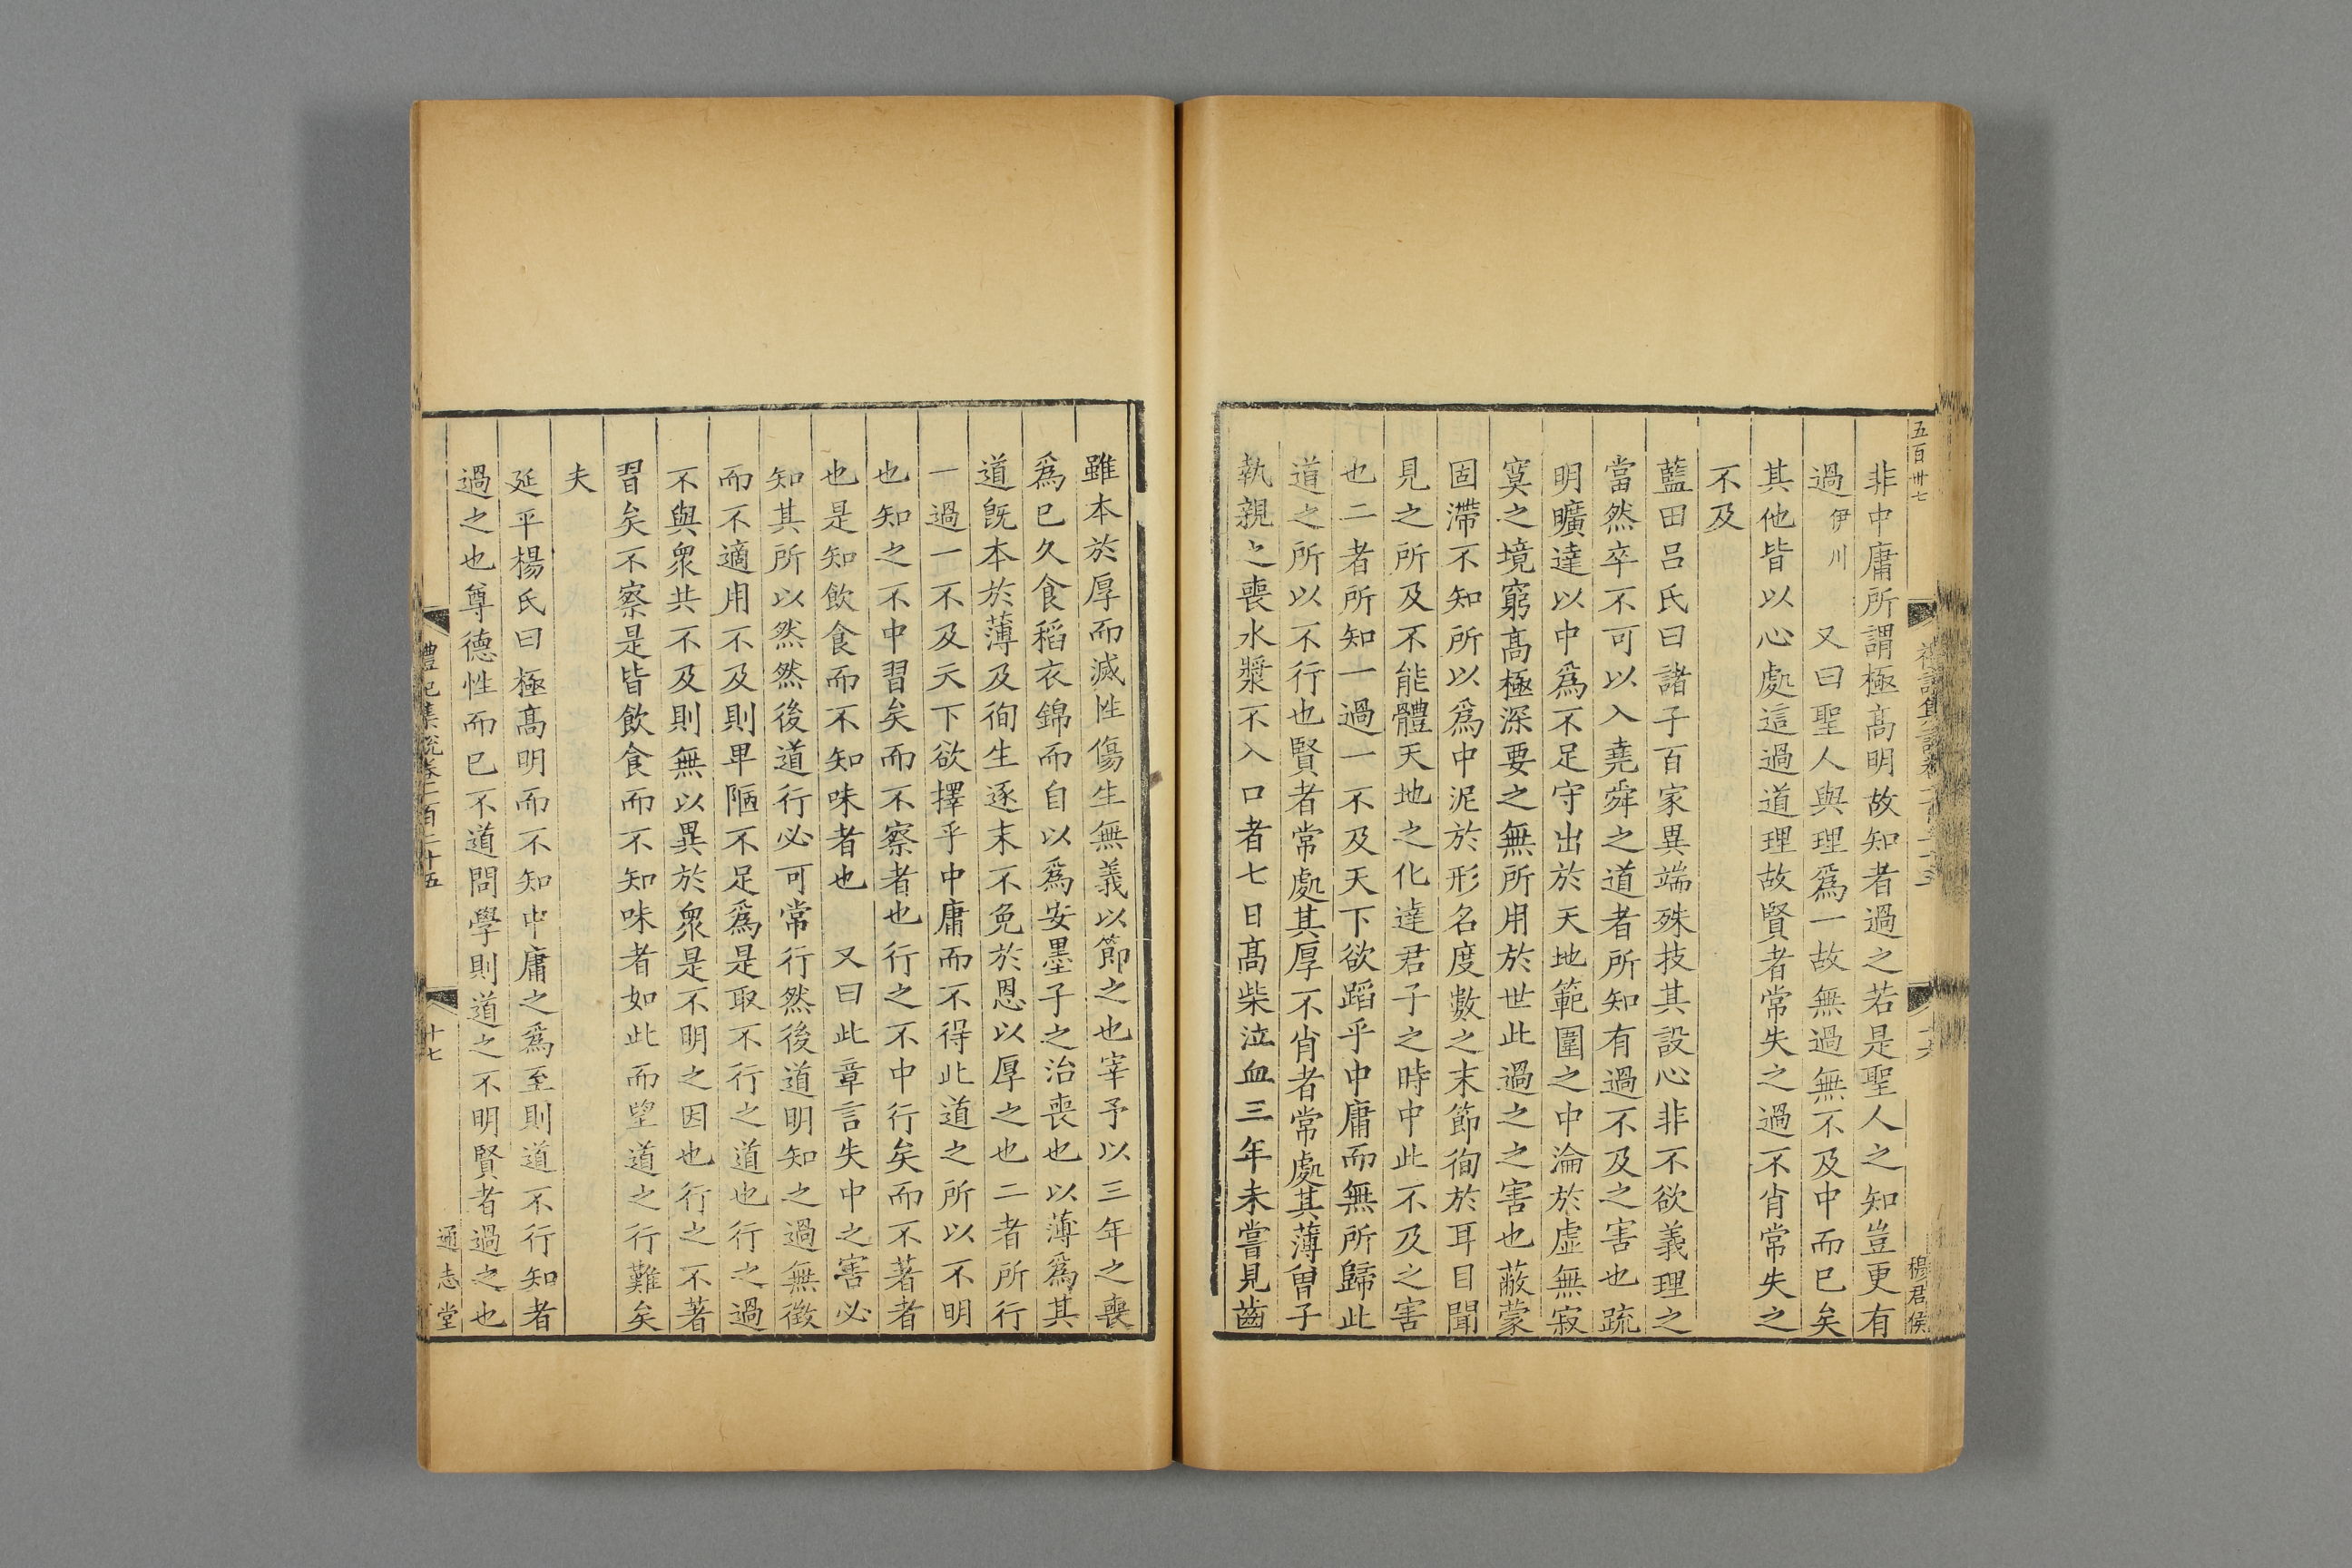 五百卅七
禮記集說卷一百二十五
十六
穆君侯
非中庸所謂極髙明故知者過之若是聖人之知豈更有
過伊川　又曰聖人與理爲一故無過無不及中而已矣
其他皆以心處這過道理故賢者常失之過不肖常失之
不及
藍田呂氏曰諸子百家異端殊技其設心非不欲義理之
當然卒不可以入堯舜之道者所知有過不及之害也疏
明曠達以中爲不足守出於天地範圍之中淪於虛無寂
寞之境窮髙極深要之無所用於世此過之之害也蔽蒙
固滯不知所以爲中泥於形名度數之末節徇於耳目聞
見之所及不能體天地之化達君子之時中此不及之害
也二者所知一過一不及天下欲蹈乎中庸而無所歸此
道之所以不行也賢者常處其厚不肖者常處其薄曾子
執親之喪水漿不入口者七日髙柴泣血三年未嘗見齒
雖本於厚而滅性傷生無義以節之也宰予以三年之喪
爲已久食稻衣錦而自以爲安墨子之治喪也以薄爲其
道既本於薄及徇生逐末不免於恩以厚之也二者所行
一過一不及天下欲擇乎中庸而不得此道之所以不明
也知之不中習矣而不察者也行之不中行矣而不著者
也是知飲食而不知味者也　又曰此章言失中之害必
知其所以然然後道行必可常行然後道明知之過無徵
而不適用不及則卑陋不足爲是取不行之道也行之過
不與衆共不及則無以異於衆是不明之因也行之不著
習矣不察是皆飲食而不知味者如此而望道之行難矣
夫
延平楊氏曰極髙明而不知中庸之爲至則道不行知者
過之也尊德性而已不道問學則道之不明賢者過之也
禮記集說卷一百二十五
十七
通志堂